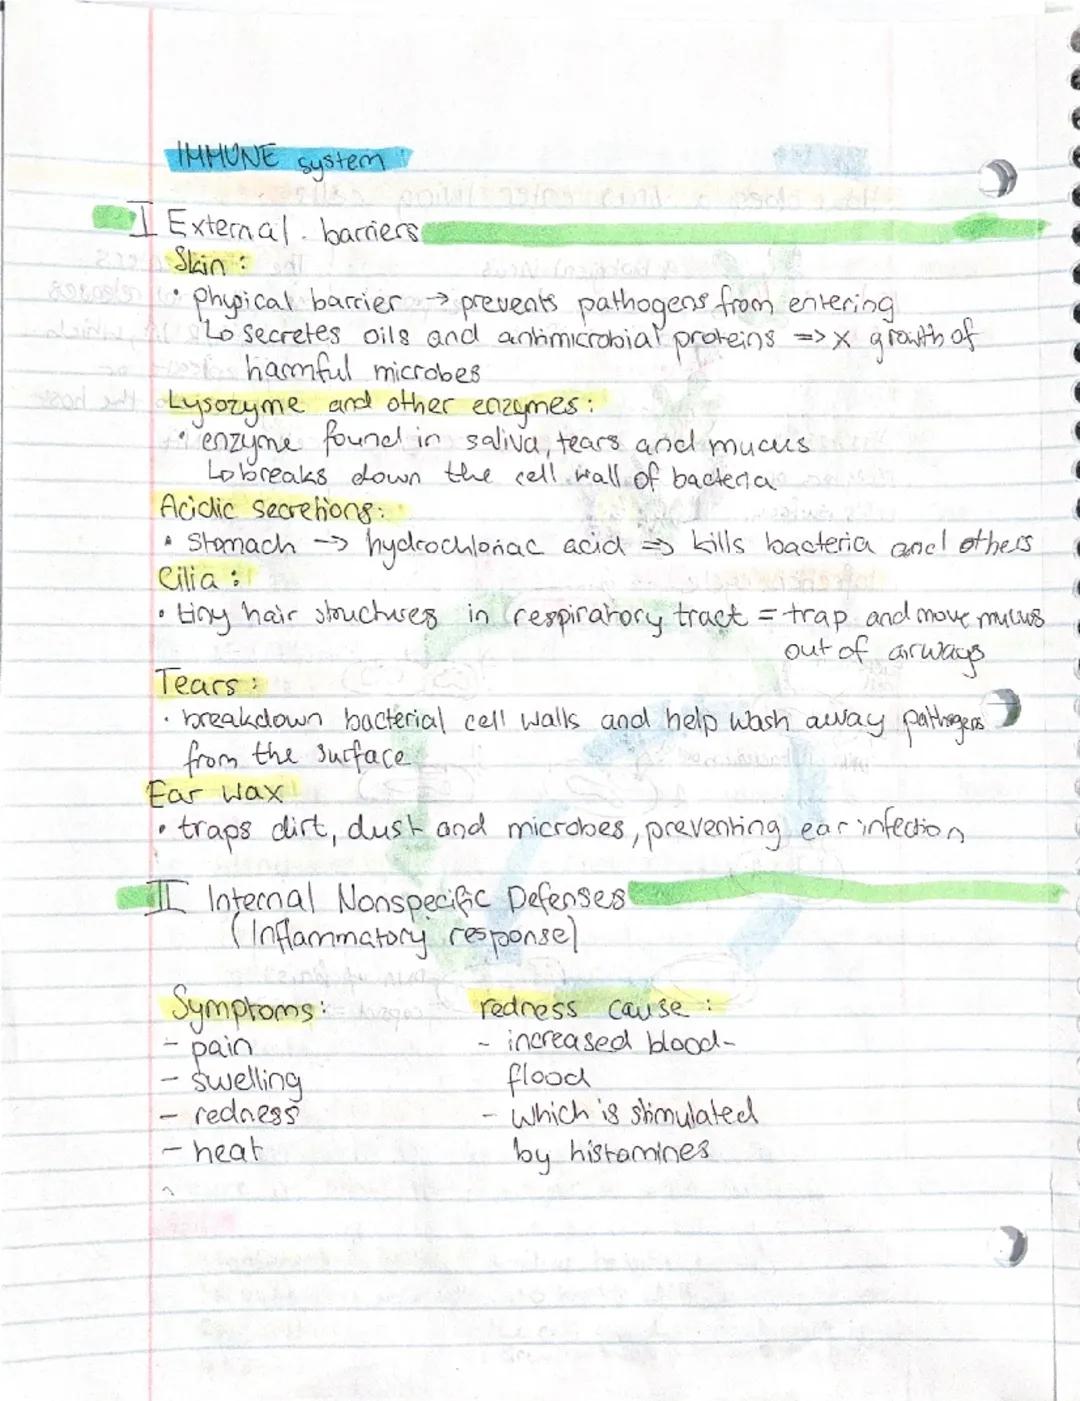 IMMUNE system
I External barriers
Skin:
• physical barrier → prevents pathogens from entering
↳ secretes oils and antimicrobial proteins => x growth of
harmful microbes
Lysozyme and other enzymes:
• enzyme found in saliva, tears and mucus
↳ breaks down the cell wall of bacteria
Acidic secretions:
• Stomach → hydrochloriac acid => kills bacteria and others
Cilia:
• tiny hair structures in respiratory tract = trap and move mucus
out of airways
Tears:
• breakdown bacterial cell walls and help wash away pathogens
from the surface
Ear wax
• traps dirt, dust and microbes, preventing ear infection
II Internal Nonspecific Defenses
(Inflammatory response)
Symptoms:
- pain
- swelling
- redness
- heat
redness cause:
- increased blood-
flood
- which is stimulated
by histamines